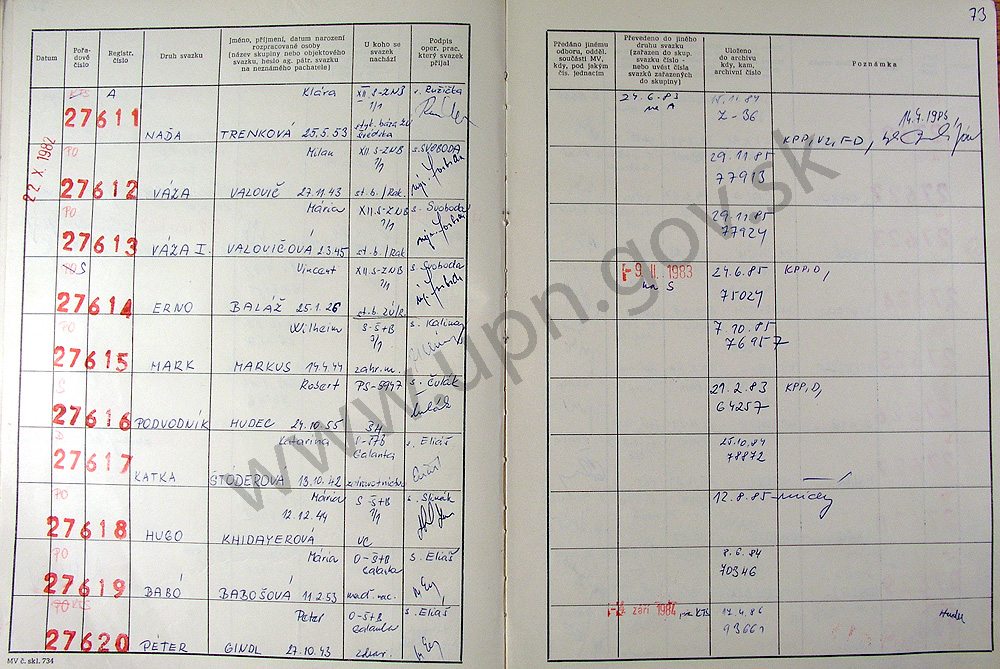 73
Datum
Pořadové číslo
Registr. číslo
Druh svazku
Jméno, příjmení, datum narození rozpracované osoby (název skupiny nebo objektového svazku, heslo ag. pátr. svazku na neznámého pachatele)
U koho se svazek nachází
Podpis oper. prac. který svazek přijal
Předáno jinému odboru, odděl. součásti MV, kdy, pod jakým čís. jednacím
Převedeno do jiného druhu svazku (zařazen do skup. svazku číslo - nebo uvést čísla svazků zařazených do skupiny)
Uloženo do archivu kdy, kam, archivní číslo
Poznámka
22 X. 1982
KTS A Klára XII. S-ZNB s. Ružička 24.6.83
27611 1/1 na A Z-36 14.4.1986,
NAĎA TRENKOVÁ 25.5.53 KPP, VZ, F-D,
PO Milan XII. S-ZNB s. SVOBODA 29.11.85
27612 1/1 77913
VÁŽA VALOVIČ 27.11.43 st. b. / Rak.
PO Mária XII. S-ZNB s. Svoboda 29.11.85
27613 1/1 77924
VÁŽA I. VALOVIČOVÁ 2.3.45 st. b. / Rak
PO Š Vincent XII. S-ZNB s. Svoboda -9. II. 1983 24.6.85 KPP, D,
27614 1/1 na Š 75027
ERNO BALÁŽ 25.1.26
PO Wilheim S-Š+B s. Kalinay 7.10.85
27615 1/1 76957
MARK MARKUS 14.4.44 zahr. m.
Š Robert PS-5947 s. Čulák 21.2.83 KPP, D,
27616 64257
PODVODNÍK HUDEC 24.10.55 34
D Katarína Š-ŠTB s. Eliáš 25.10.84
27617 Galanta 78872
KATKA ŠTÓDEROVÁ 13.10.42 zdravotníctvo
PO Mária S-Š+B 12.8.85
27618 12.12.44 1/1
HUGO KHIDAYEROVÁ VC
PO Mária O-Š+B s. Eliáš 8.6.84
27619 Galanta 70346
BABÓ BABOŠOVÁ 11.2.53 maď. nac.
PO KTS Peter O-Š+B s. Eliáš září 1984 na KTS 17.4.86
27620 Galanta 93661
PÉTER GINDL 27.10.43
MV č. skl. 734
www.upn.gov.sk